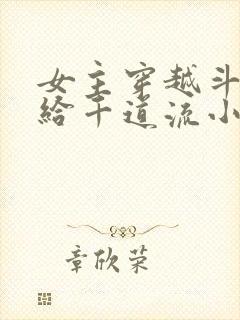 女主穿越斗
给千道流小
章欣荣